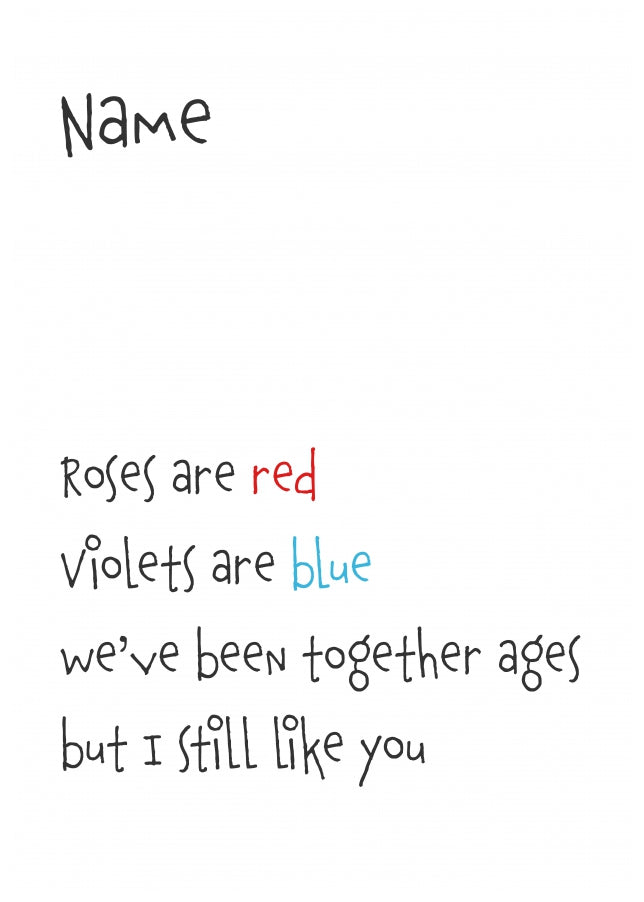 Name
Roses are red
violets are blue
we've been together ages
but I still like you